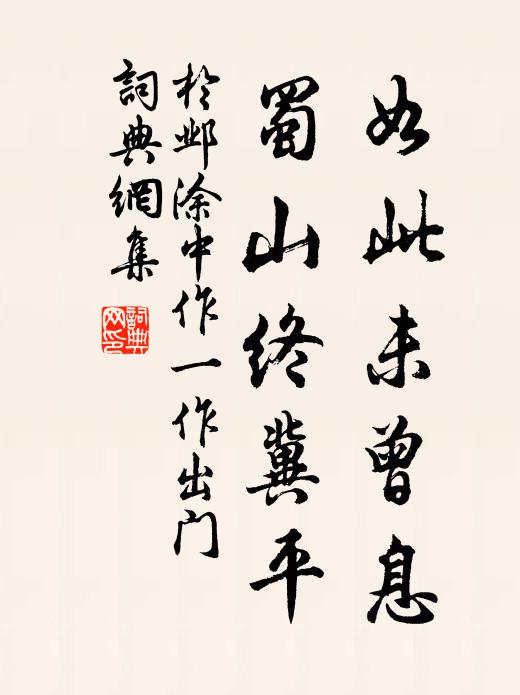 如此未曾息
蜀山终冀平
於邺涂中作一作出门
詞典網集
詞典网印